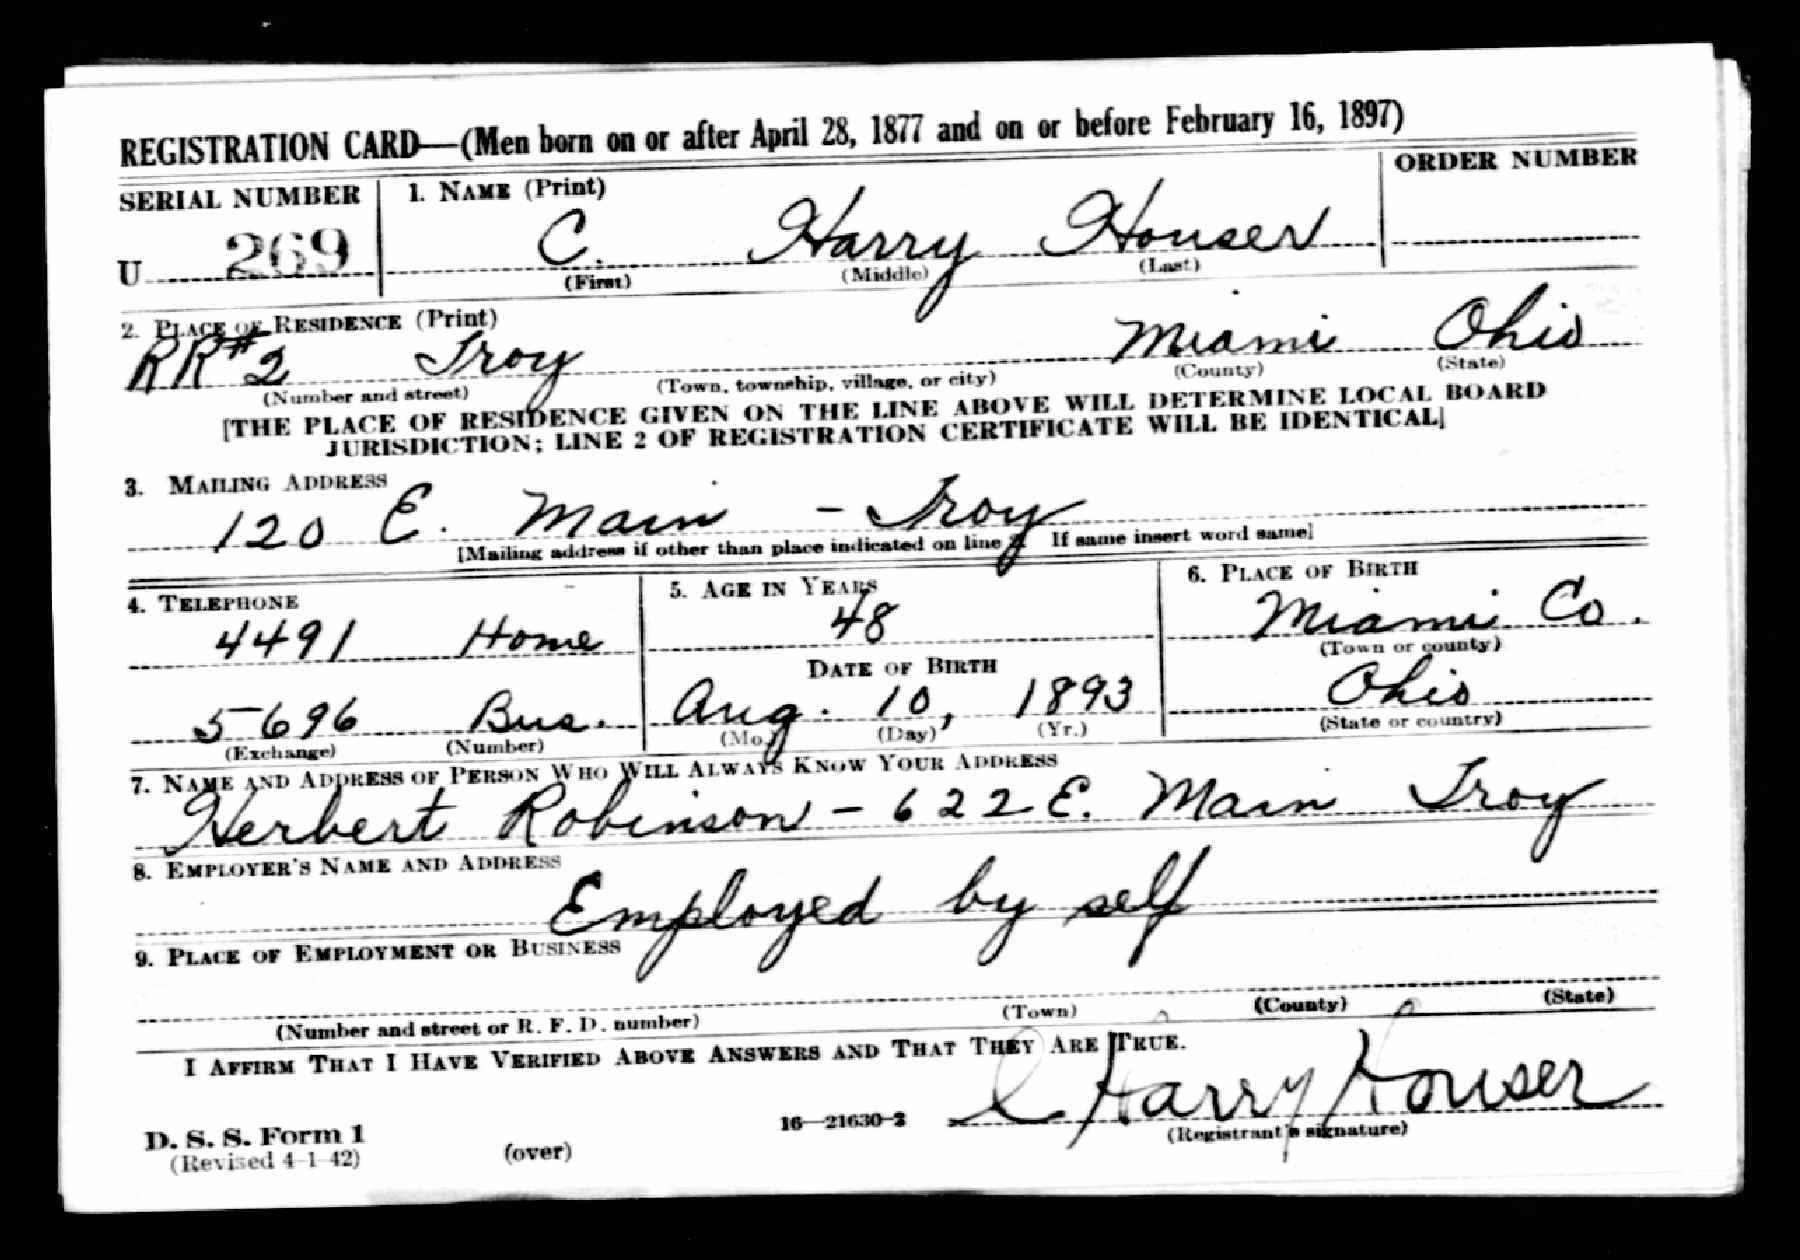 REGISTRATION CARD—(Men born on or after April 28, 1877 and on or before February 16, 1897)
SERIAL NUMBER
1. NAME (Print)
ORDER NUMBER
U 269
C. Harry Houser
(First) (Middle) (Last)
2. PLACE OF RESIDENCE (Print)
RR#2 Troy Miami Ohio
(Number and street) (Town, township, village, or city) (County) (State)
[THE PLACE OF RESIDENCE GIVEN ON THE LINE ABOVE WILL DETERMINE LOCAL BOARD
JURISDICTION; LINE 2 OF REGISTRATION CERTIFICATE WILL BE IDENTICAL]
3. MAILING ADDRESS
120 E. Main - Troy
[Mailing address if other than place indicated on line 2. If same insert word same]
4. TELEPHONE
4491 Home
5696 Bus.
(Exchange) (Number)
5. AGE IN YEARS
48
DATE OF BIRTH
Aug. 10, 1893
(Mo.) (Day) (Yr.)
6. PLACE OF BIRTH
Miami Co.
(Town or county)
Ohio
(State or country)
7. NAME AND ADDRESS OF PERSON WHO WILL ALWAYS KNOW YOUR ADDRESS
Herbert Robinson - 622 E. Main Troy
8. EMPLOYER'S NAME AND ADDRESS
Employed by self
9. PLACE OF EMPLOYMENT OR BUSINESS
(Number and street or R. F. D. number) (Town) (County) (State)
I AFFIRM THAT I HAVE VERIFIED ABOVE ANSWERS AND THAT THEY ARE TRUE.
C Harry Houser
D. S. S. Form 1
(Revised 4-1-42)
(over)
16—21630-2
(Registrant's signature)